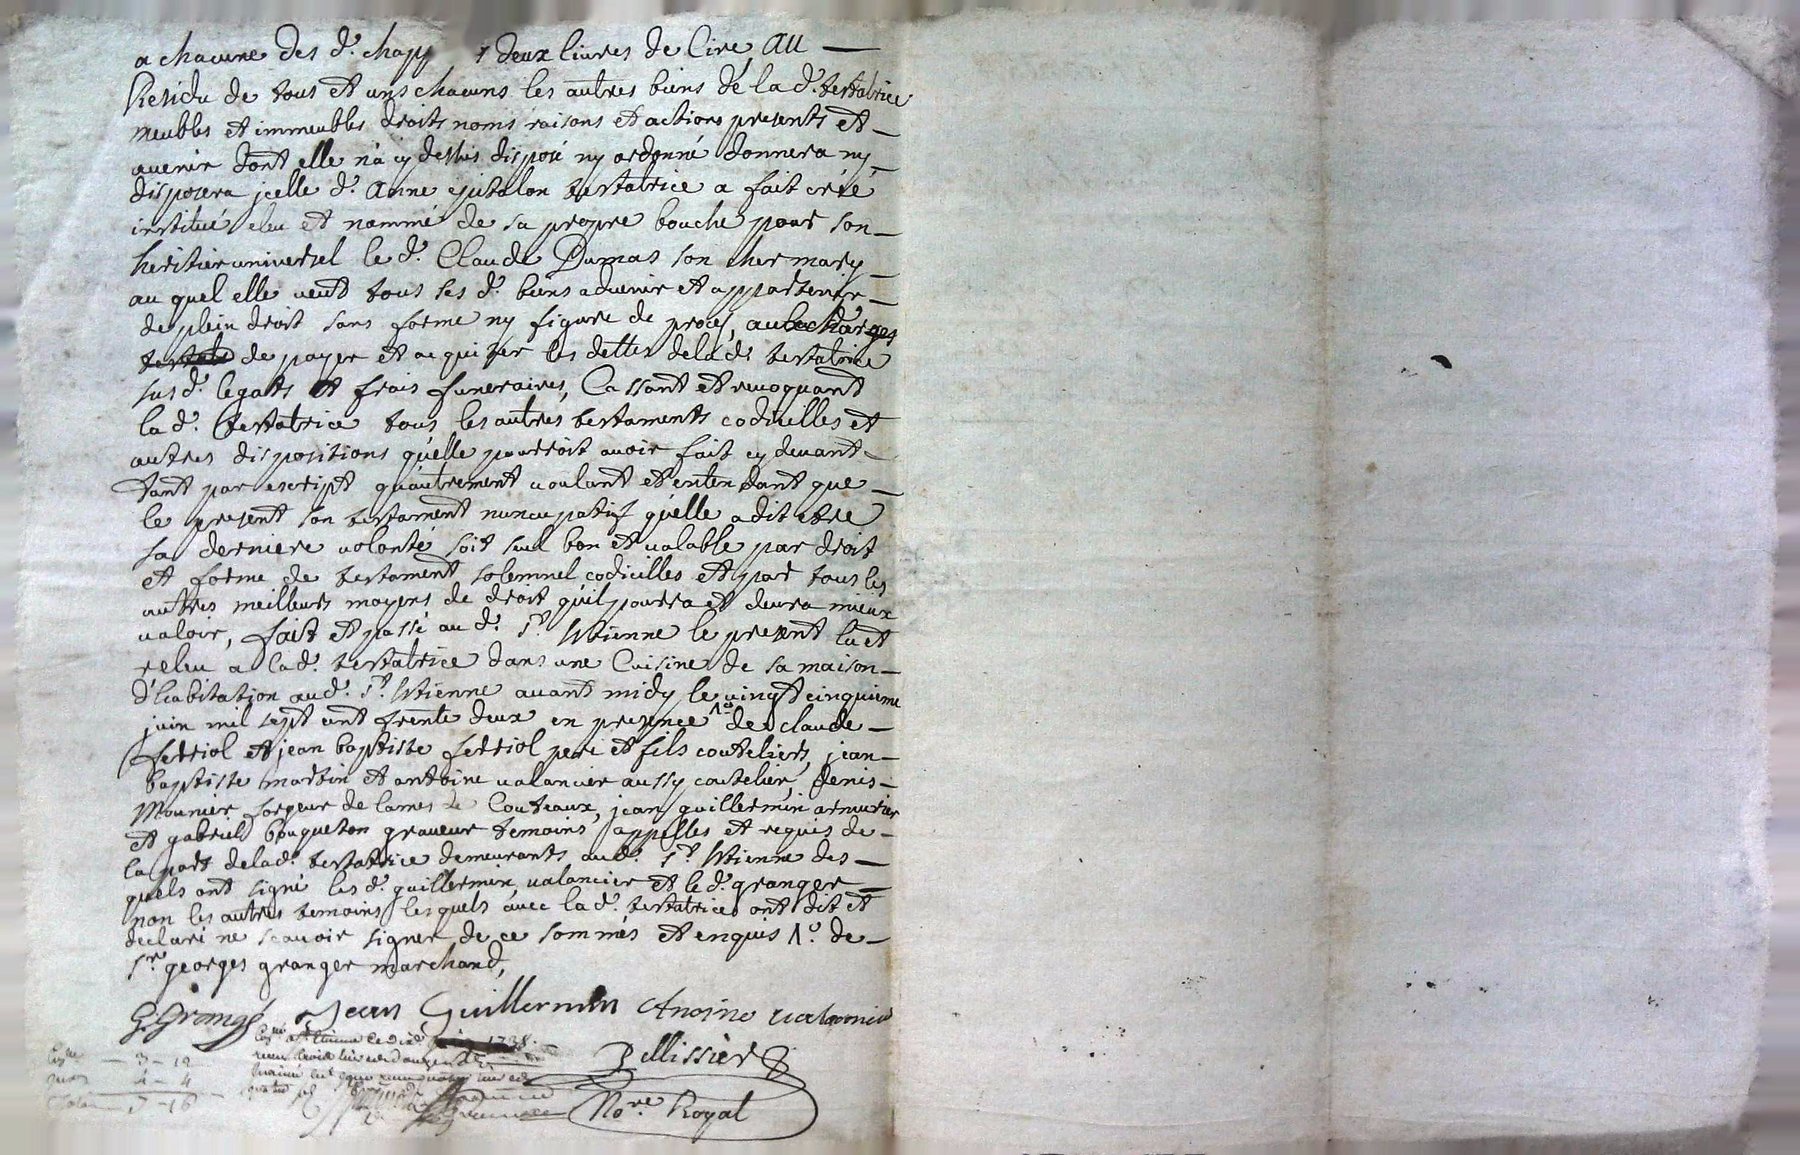 a chacune des d. chapp deux livres de Cire, au
Residu de tous et uns chacuns les autres biens de la d. testatrice
meubles et immeubles droits noms raisons et actions presents et
avenir dont elle n'a cy dessus disposé ny ordonné donnera ny
disposera jcelle d. anne testatrice a fait créé
institué eleu et nommé de sa propre bouche pour son
heritier universel le d. Claude Dumas son cher mary
au quel elle veut tous ses d. biens advenir et appartenir
de plein droit sans forme ny figure de procez, au charges
de payer et acquiter les dettes de lad. testatrice
susd. legats et frais funeraires, Cassant et revoquant
la d. testatrice tous les autres testaments codicilles et
autres dispositions qu'elle pourroit avoir fait cy devant
tant par escript qu'autrement voulant et entendant que
le present son testament nuncupatif qu'elle a dit etre
sa derniere volonté soit seul bon et valable par droit
et forme de testament solemnel codicilles et par tous les
autres meilleurs moyens de droit qu'il pourra et devra mieux
valoir, fait et passé au d. st. Etienne le present lu et
releu a la d. testatrice dans une Cuisine de sa maison
d'habitation aud. st. Etienne avant midy le vingt cinquieme
juin mil sept cent trente deux en presence de claude
ferriol et jean baptiste ferriol pere et fils couteliers, jean
baptiste martin et antoine valancier aussy coutelier, denis
Mounier forgeur de lames de Couteaux, jean guillermin armurier
et gabriel bouqueton graveur temoins appelles et requis de
la part de lad. testatrice demeurants aud. st. Etienne des
quels ont signé les d. guillermin, valancier et le d. granger
non les autres temoins lesquels avec la d. testatrice ont dit et
declaré ne scavoir signer de ce sommés et enquis 1o. de
sr. georges granger marchand,
G. Granger Jean Guillermin Antoine valancier
1738.
3 - 12
4 - 4
Pellissier
Nore. Royal